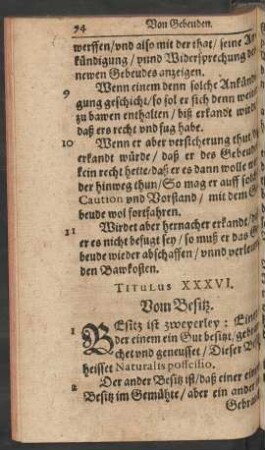 94 Von Gebeuden.
werffen/vnd also mit der that/ seine An
kündigung / vnnd Widersprechung des
newen Gebeudes anzeigen.
9 Wenn einem denn solche Ankündi
gung geschicht/so sol er sich denn weiter
zu bawen enthalten / biß erkandt wird
daß ers recht vnd fug habe.
10 Wenn er aber versicherung thut
erkandt würde / daß er des Gebeudes
kein recht hette/daß er es dann wolle
der hinweg thun/So mag er auff solche
Caution vnd Vorstand / mit dem Ge
beude wol fortfahren.
11 Wirdet aber hernacher erkandt/
er es nicht befugt sey / so muß er das Ge
beude wieder abschaffen / vnnd verleu
den Bawkosten.
TITULUS XXXVI.
Vom Besitz.
1 BEsitz ist zweyerley : Einer
der einem ein Gut besitzt/
chet vnd geneusset / Dieser
heisset Naturalis possessio.
2 Der ander Besitz ist/daß einer
Besitz im Gemühte / aber ein ander
Gebrau